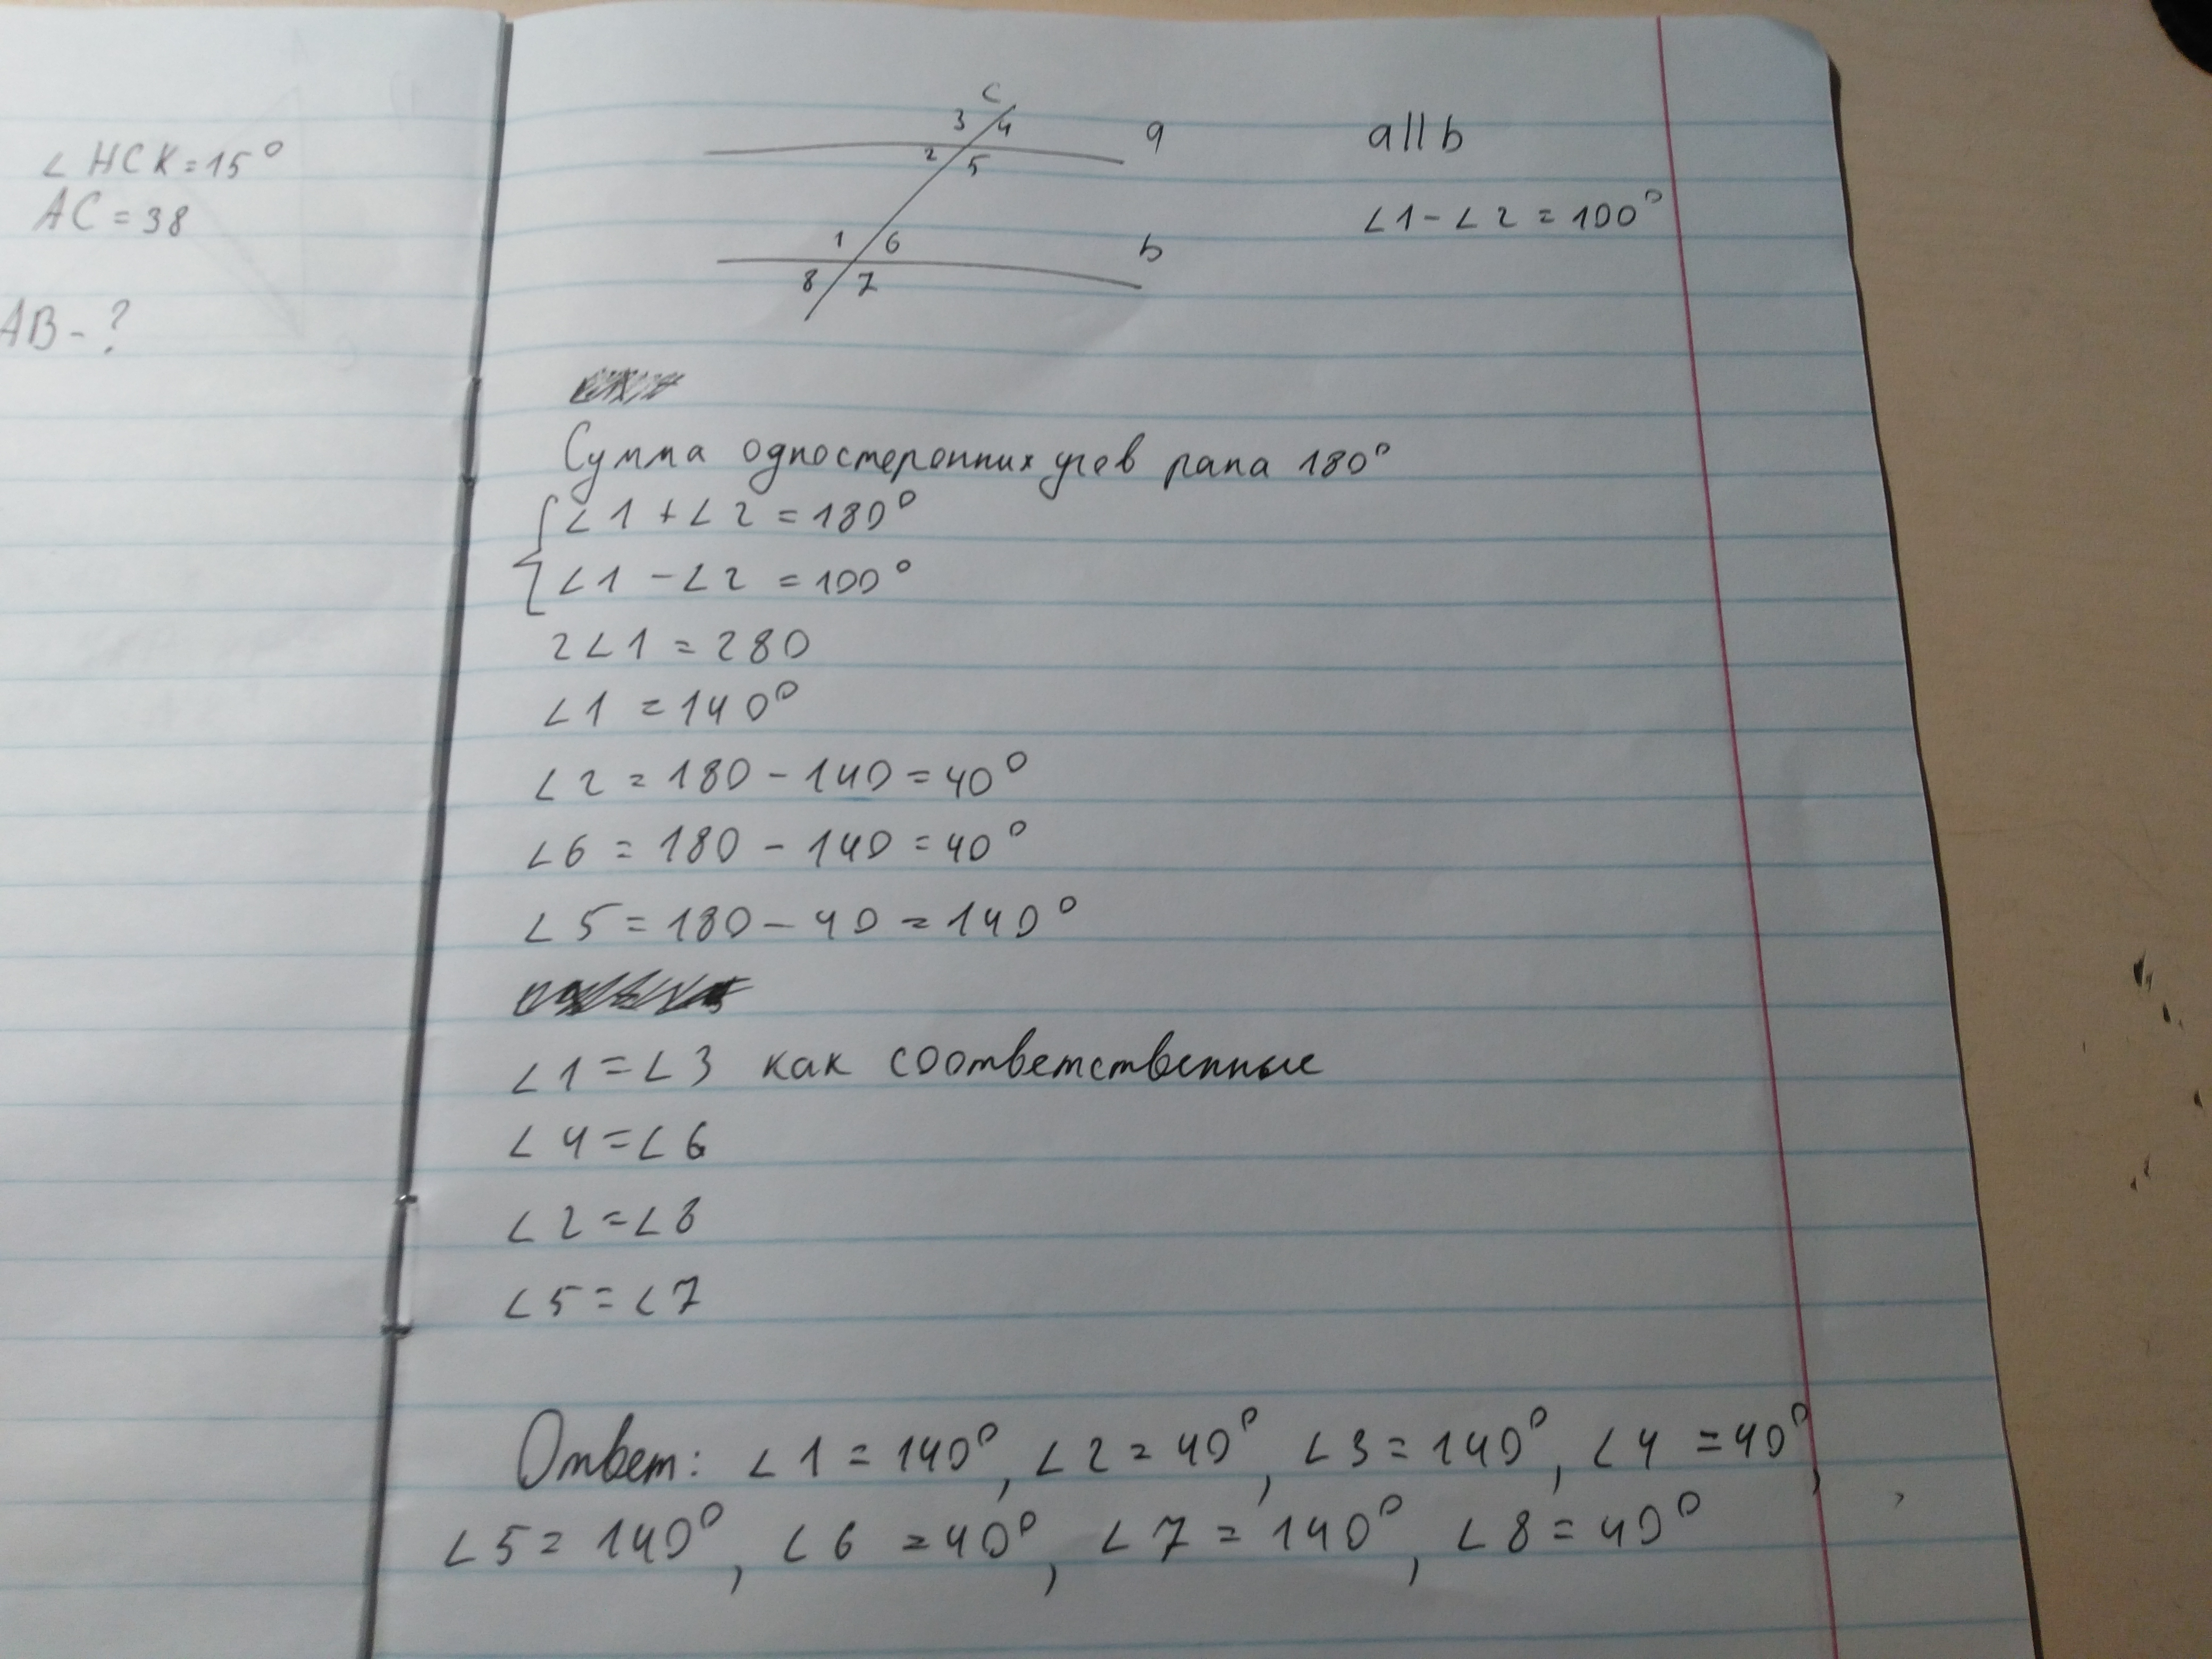 ∠ HCK = 15°
AC = 38
AB - ?
c
3 4
a
2 5
1 6
b
8 7
a || b
∠1 - ∠2 = 100°
Сумма одностеронних угев рапа 180°
∠1 + ∠2 = 180°
∠1 - ∠2 = 100°
2∠1 = 280
∠1 = 140°
∠2 = 180 - 140 = 40°
∠6 = 180 - 140 = 40°
∠5 = 180 - 40 = 140°
∠1 = ∠3 как соответственные
∠4 = ∠6
∠2 = ∠8
∠5 = ∠7
Ответ: ∠1 = 140°, ∠2 = 40°, ∠3 = 140°, ∠4 = 40°,
∠5 = 140°, ∠6 = 40°, ∠7 = 140°, ∠8 = 40°